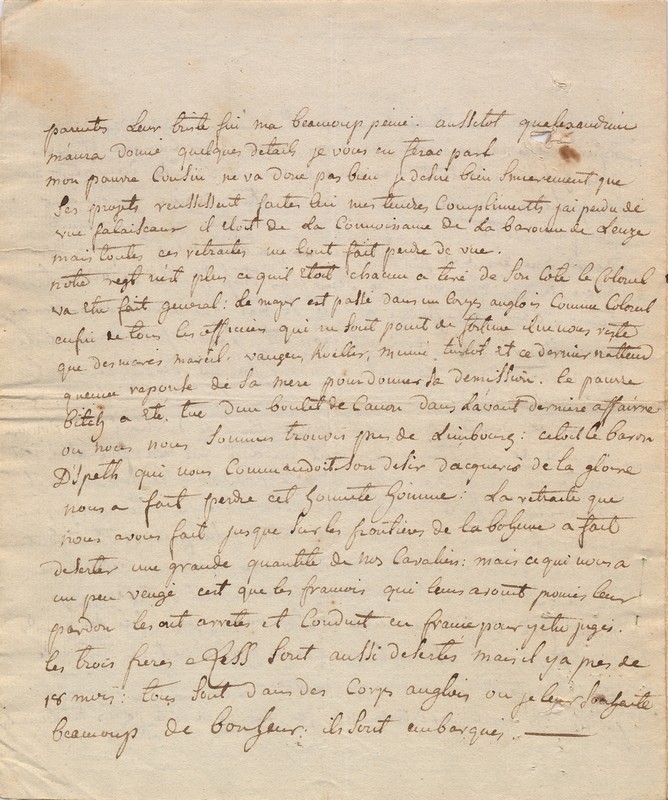 parents leur triste fin ma beaucoup peiné. aussitot qualexandrin
maura donné quelques details je vous en ferai part
mon pauvre Cousin ne va donc pas bien je desire bien sincerement que
ses projets reussissent faites lui mes tendres Compliments jai perdu de
vue falaiseau il etoit de la Connoissance de la baronne de Leuze
mais toutes ces retraites me l'ont fait perdre de vue.
notre regt n'est plus ce quil etoit chacun a tiré de son coté le Colonel
va etre fait general: le major est passé dans un Corps anglois Comme Colonel
enfin de tous les officiers qui ne sont point de fortune il ne nous reste
que desmares mareil. Koeller, et ce dernier nattend
quune reponse de sa mere pour donner sa demission. le pauvre
bitch a eté tué dun boulet de Canon dans l'avant derniere affairre
ou nous nous sommes trouvés pres de Limbourg: cetoit le baron
D'speth qui nous Commandoit son desir d'acquerir de la gloire
nous a fait perdre cet honnete homme: La retraite que
nous avons fait jusque sur les frontieres de la boheme a fait
deserter une grande quantité de nos Cavaliers: mais ce qui nous a
un peu vengé c'est que les francois qui leurs avoient promis leur
pardon les ont arretés et Conduit en france pour y etre jugés.
les trois freres sont aussi desertés mais il y a pres de
18 mois: tous sont dans des Corps anglois ou je leur souhaite
beaucoup de bonheur: ils sont embarqués.